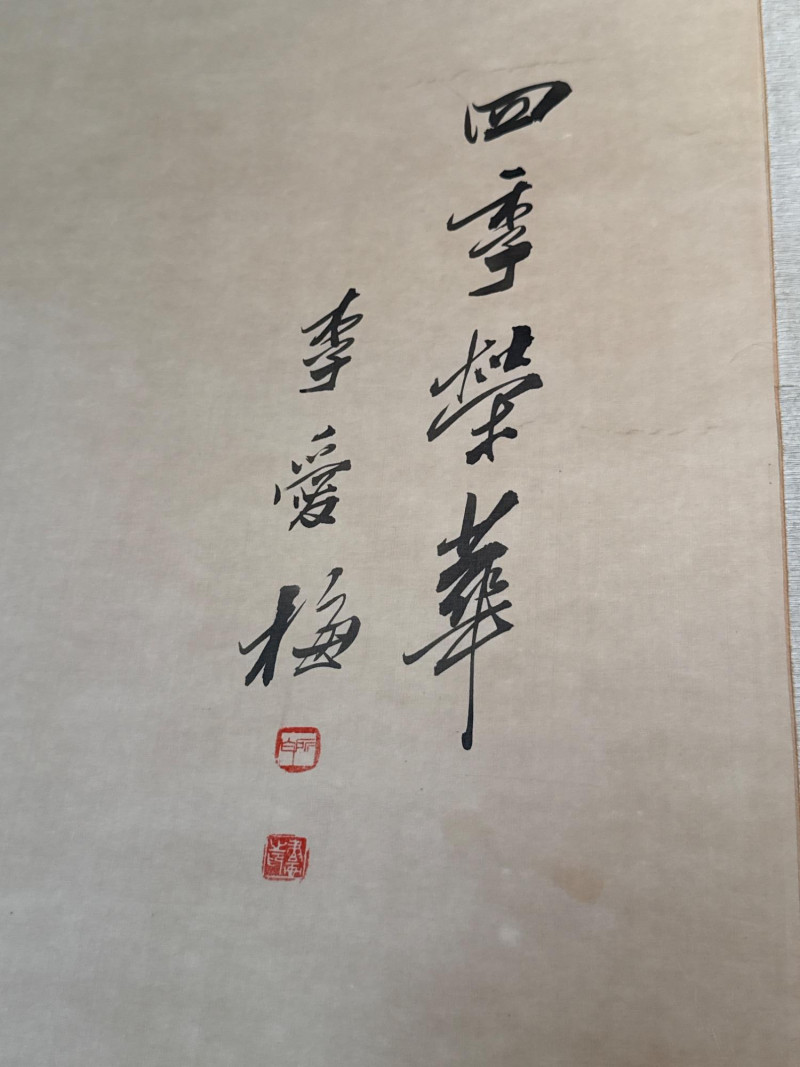 四季榮華
李愛梅